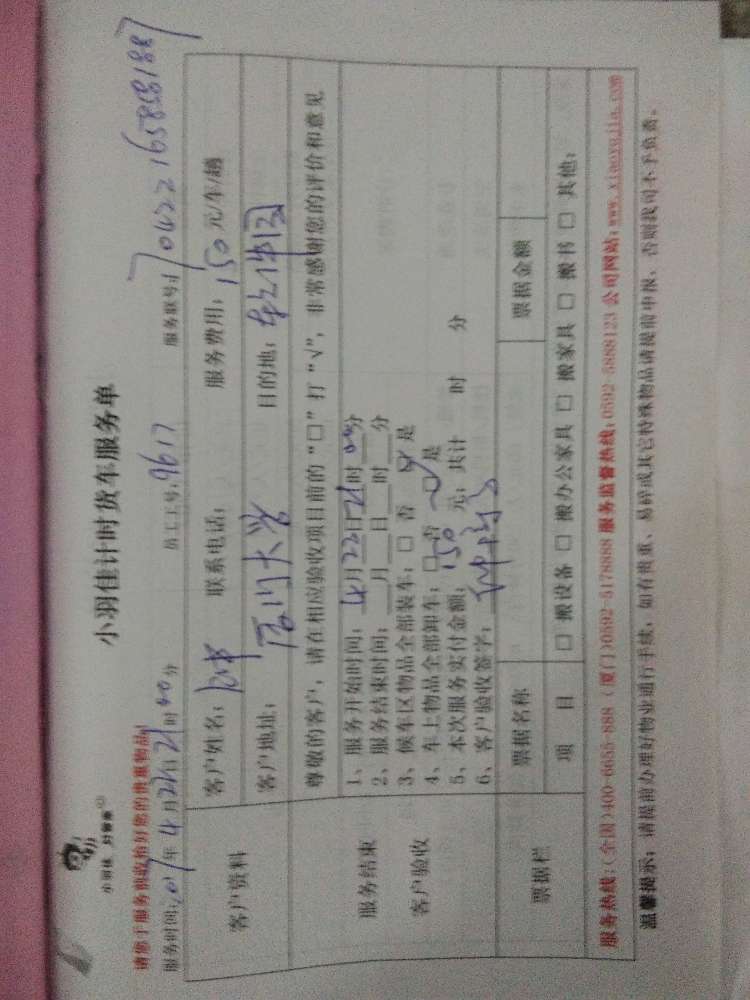 小羽佳计时货车服务单
小羽佳，好管家
请您于服务前收拾好您的贵重物品！
服务时间：2017年4月22日21时40分 员工工号：9617 服务账号：170422165858188
客户资料
客户姓名： 联系电话： 服务费用：150元/车/趟
客户地址：厦门大学 目的地：
服务结束
客户验收
尊敬的客户，请在相应验收项目前的“□”打“√”，非常感谢您的评价和意见
1、服务开始时间：4月22日21时00分
2、服务结束时间：__月__日__时__分
3、候车区物品全部装车：□否 □是
4、车上物品全部卸车：□否 □是
5、本次服务实付金额：150元；共计 时 分
6、客户验收签字：
票据栏
票据名称 票据金额
项目 □搬设备 □搬办公家具 □搬家具 □搬书 □其他：
服务热线：(全国)400-6655-888 (厦门)0592-5178888 服务监督热线：0592-5888123 公司网站：www.xiaoyujia.com
温馨提示：请提前办理好物业通行手续，如有贵重、易碎或其它特殊物品请提前申报，否则我司不予负责。